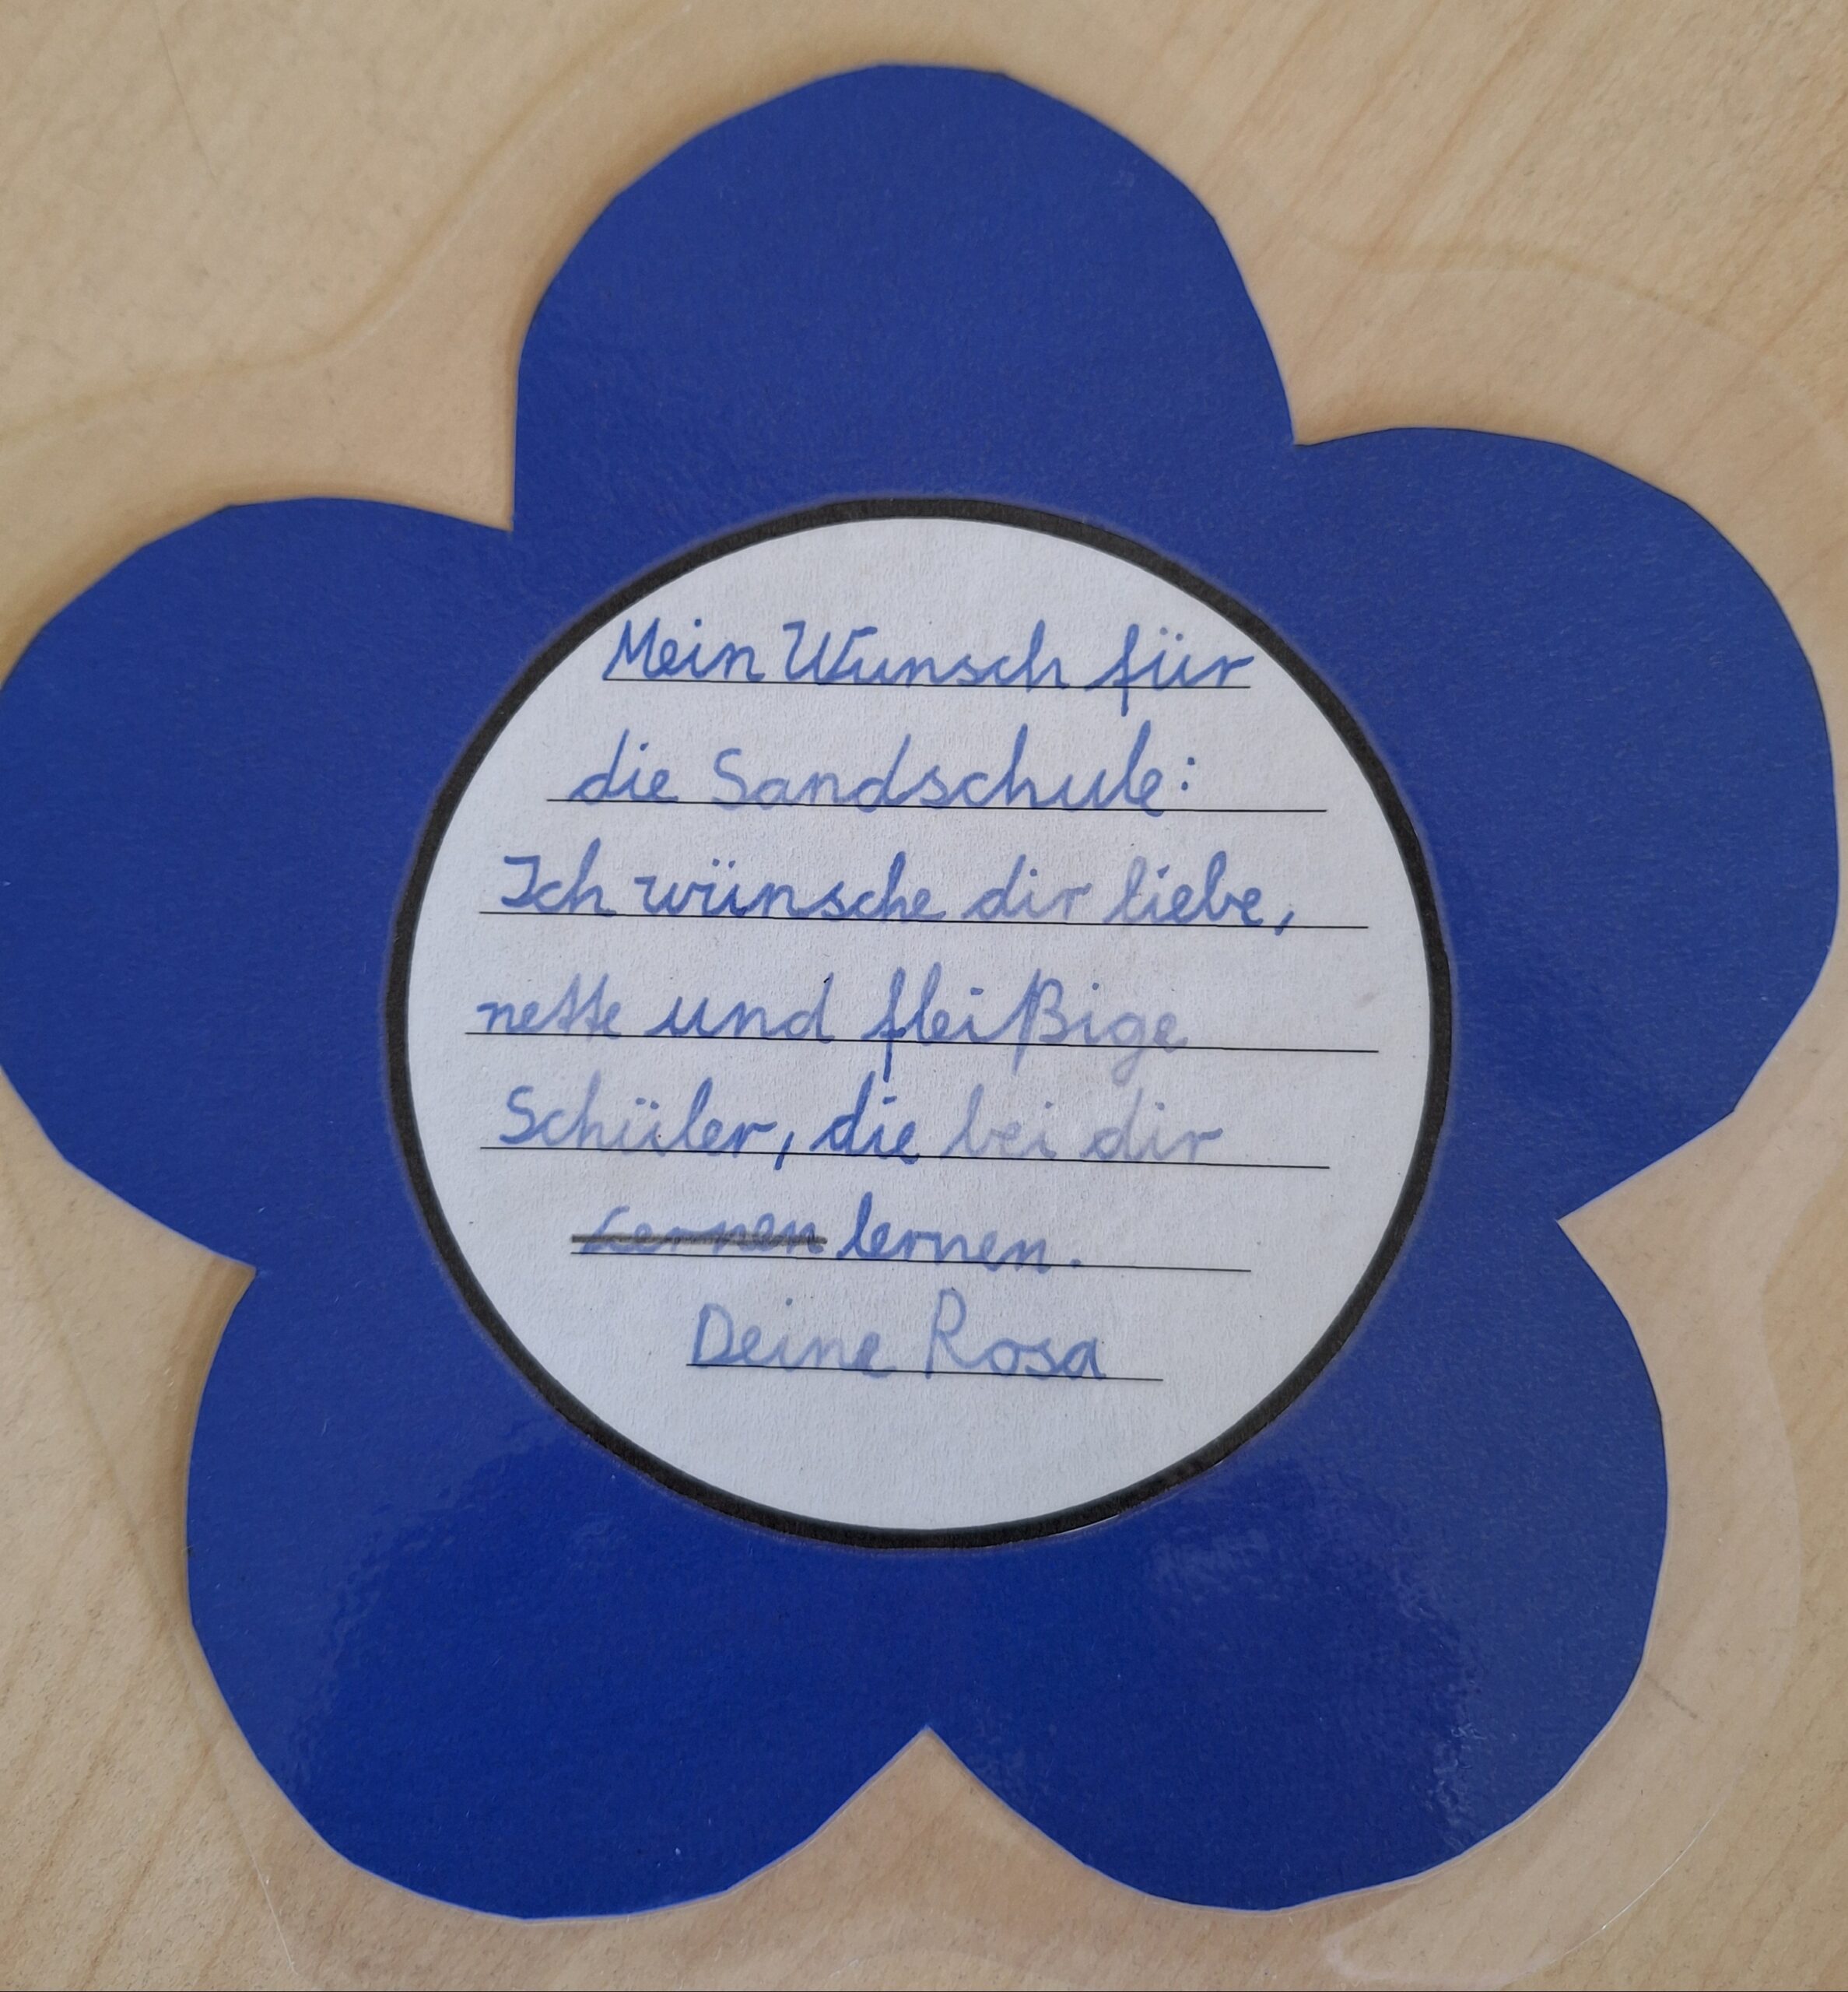 Mein Wunsch für
die Sandschule:
Ich wünsche dir liebe,
nette und fleißige
Schüler, die bei dir
Lernen lernen.
Deine Rosa